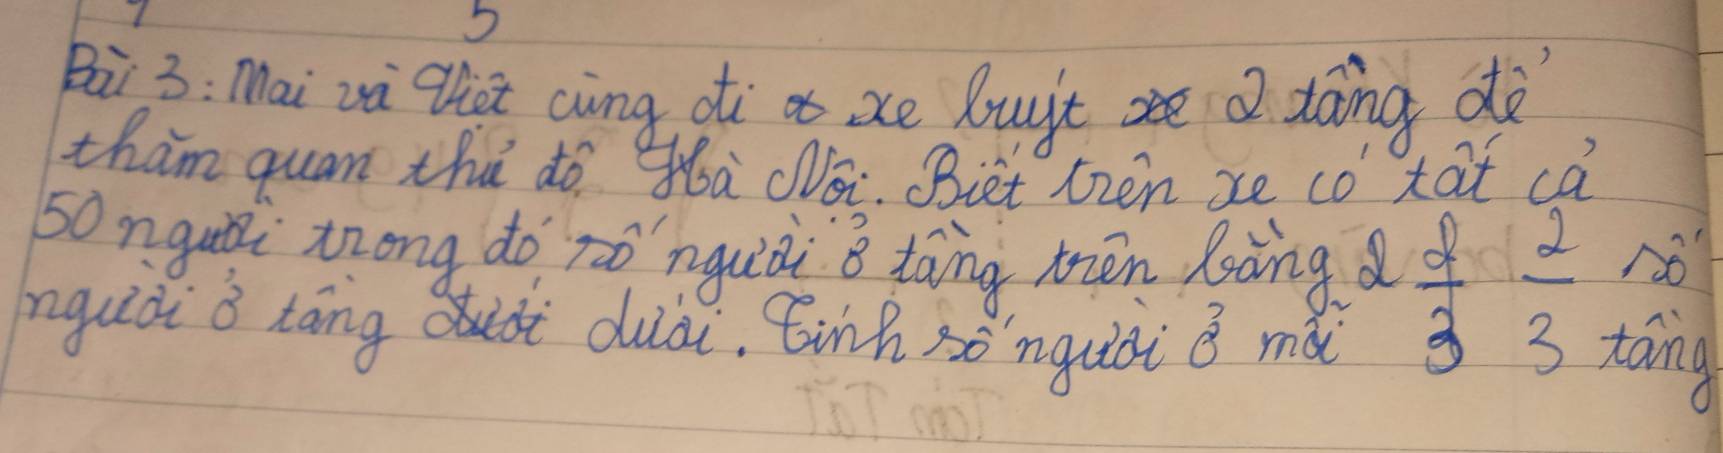 5
Bài 3: Mai và Việt cùng đi xe buýt 2 tầng để
thăm quan thủ đô Hà Nội. Biết trên xe có tất cả
50 người trong đó số người ở tầng trên bằng 2/3 số
người ở tầng dưới. Tính số người ở mỗi tầng